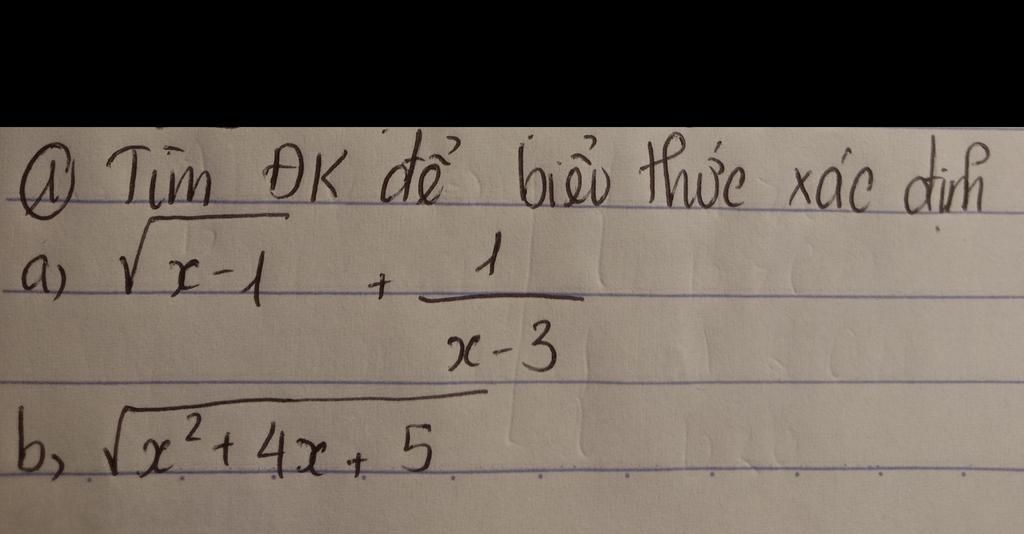 ① Tìm ĐK để biểu thức xác định
a) √(x-1) + 1/(x-3)
b, √(x²+4x+5)